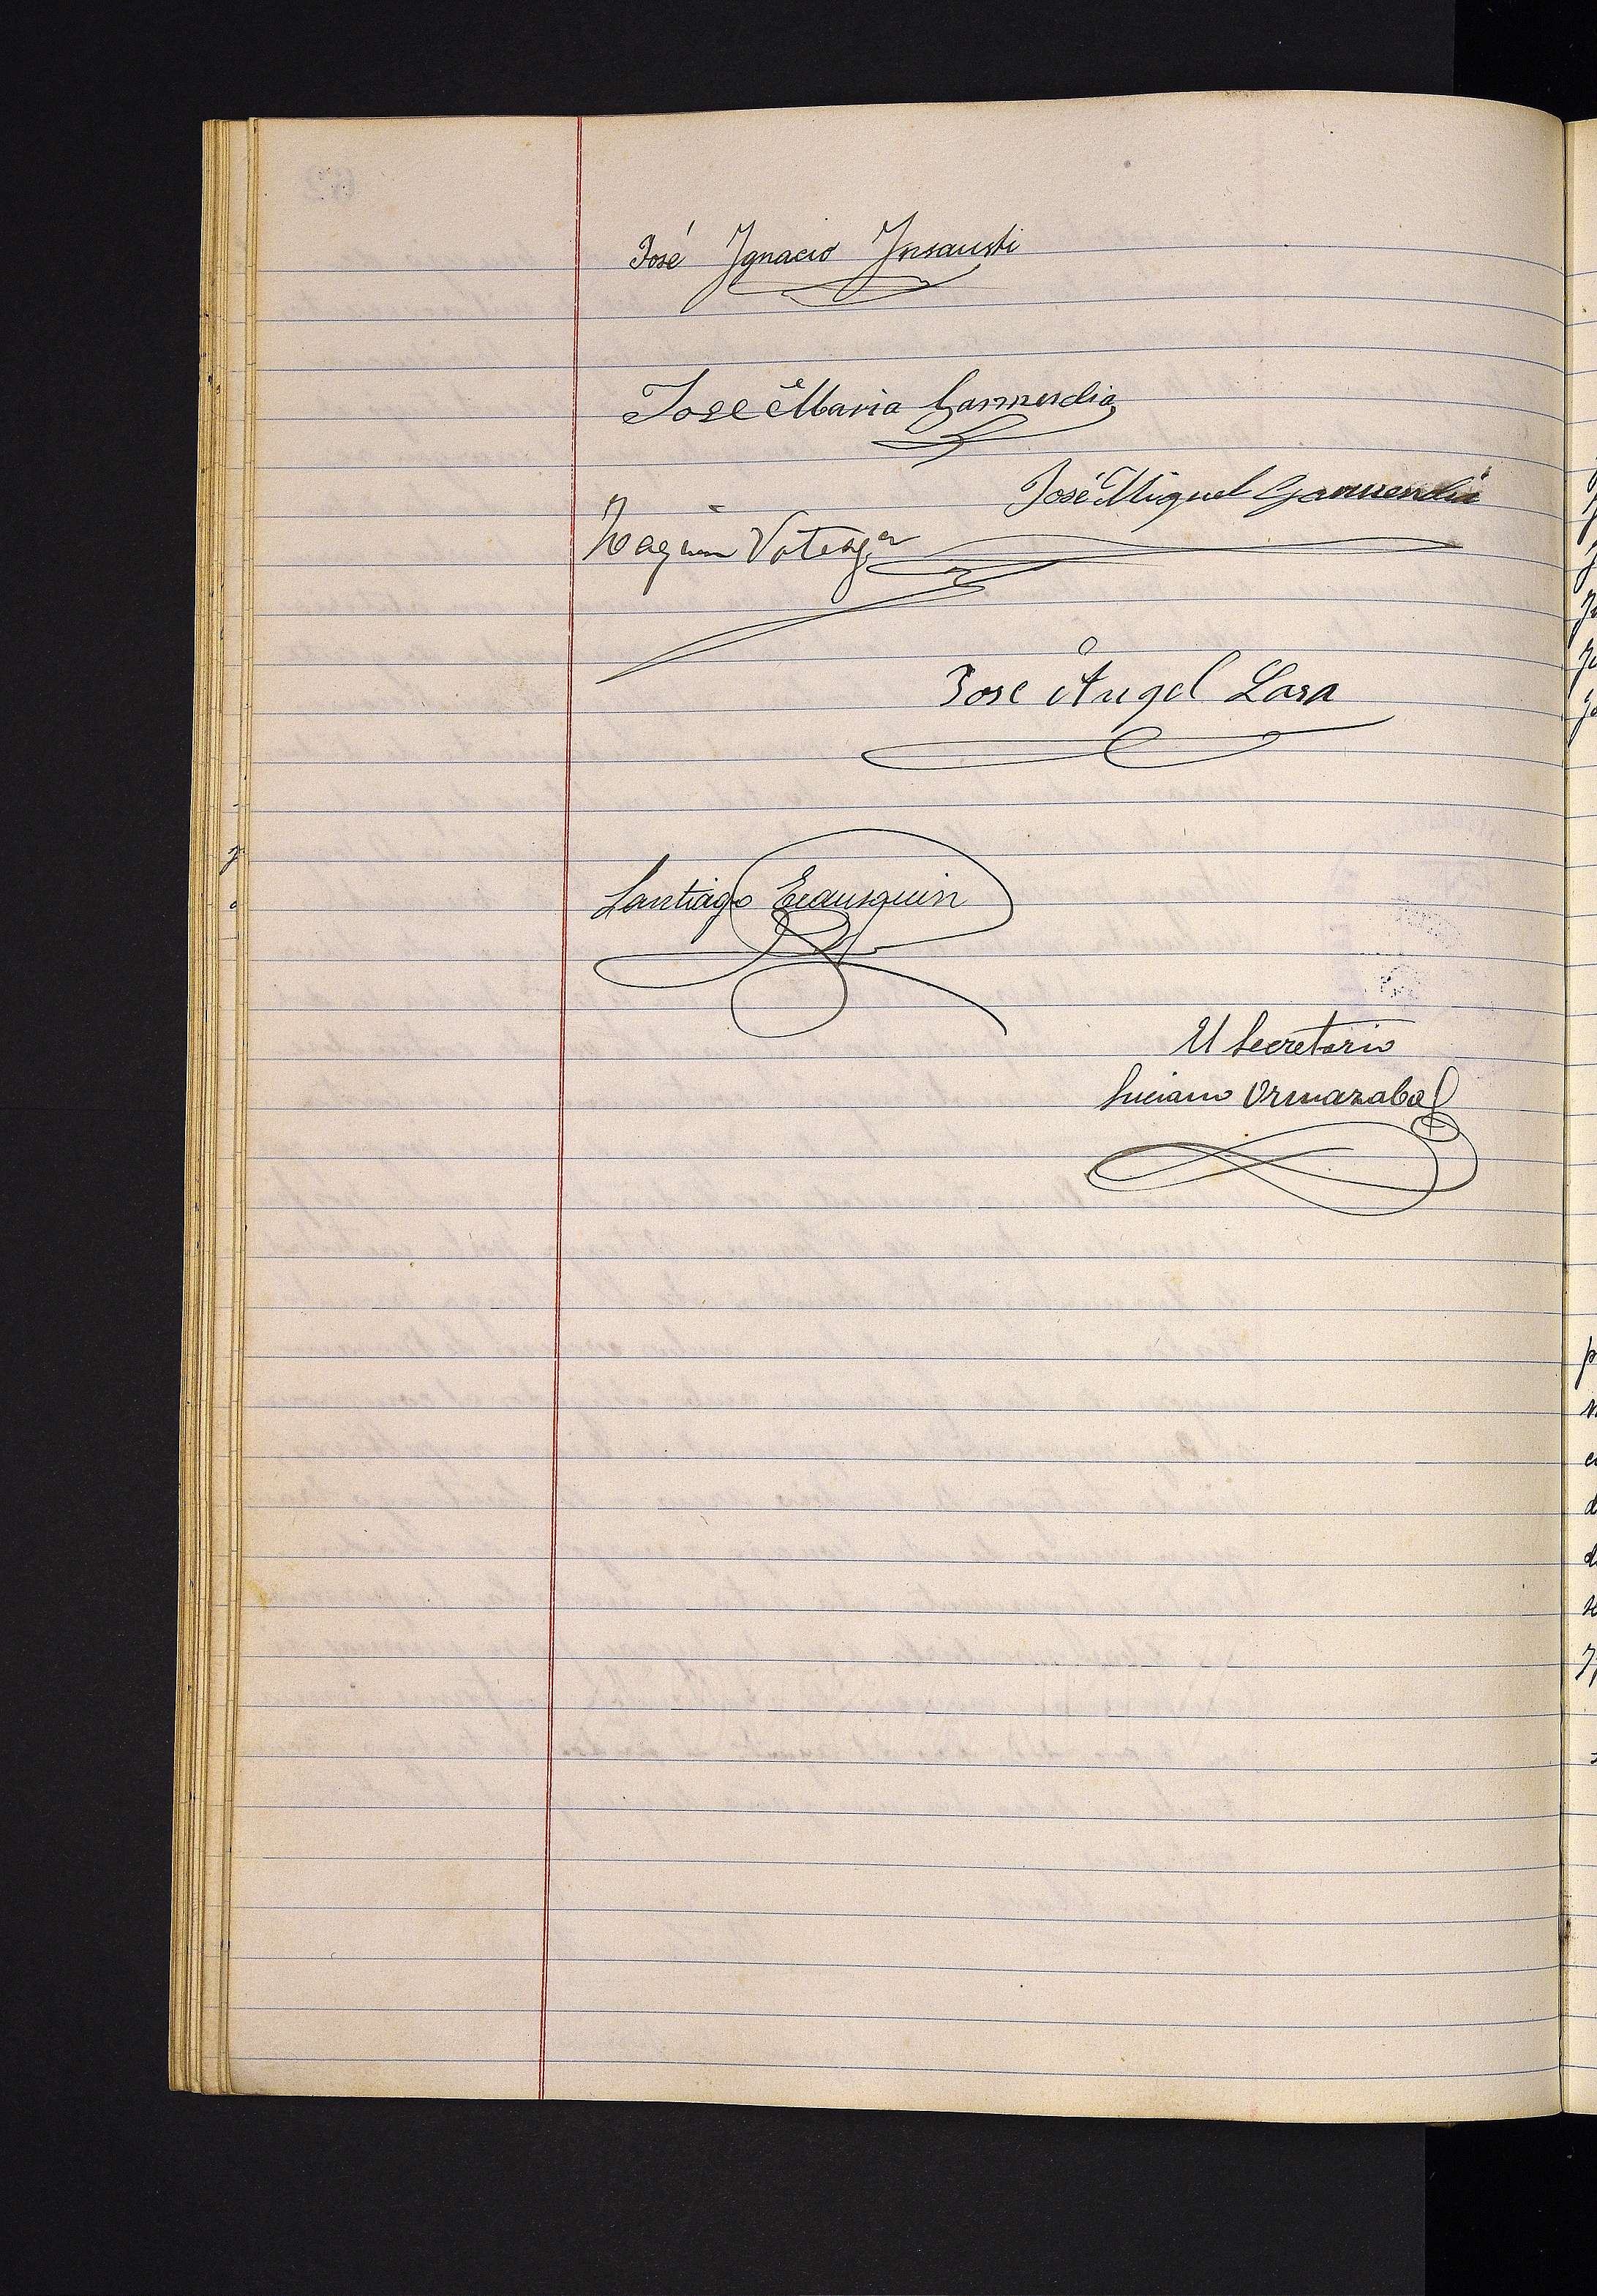 José Ygnacio Ynsausti
Jose Maria Garmendia
José Miguel Garmendia
Joaquin
Jose Angel Lasa
Santiago Ecausquin
El Secretario
Luciano Ormazabal